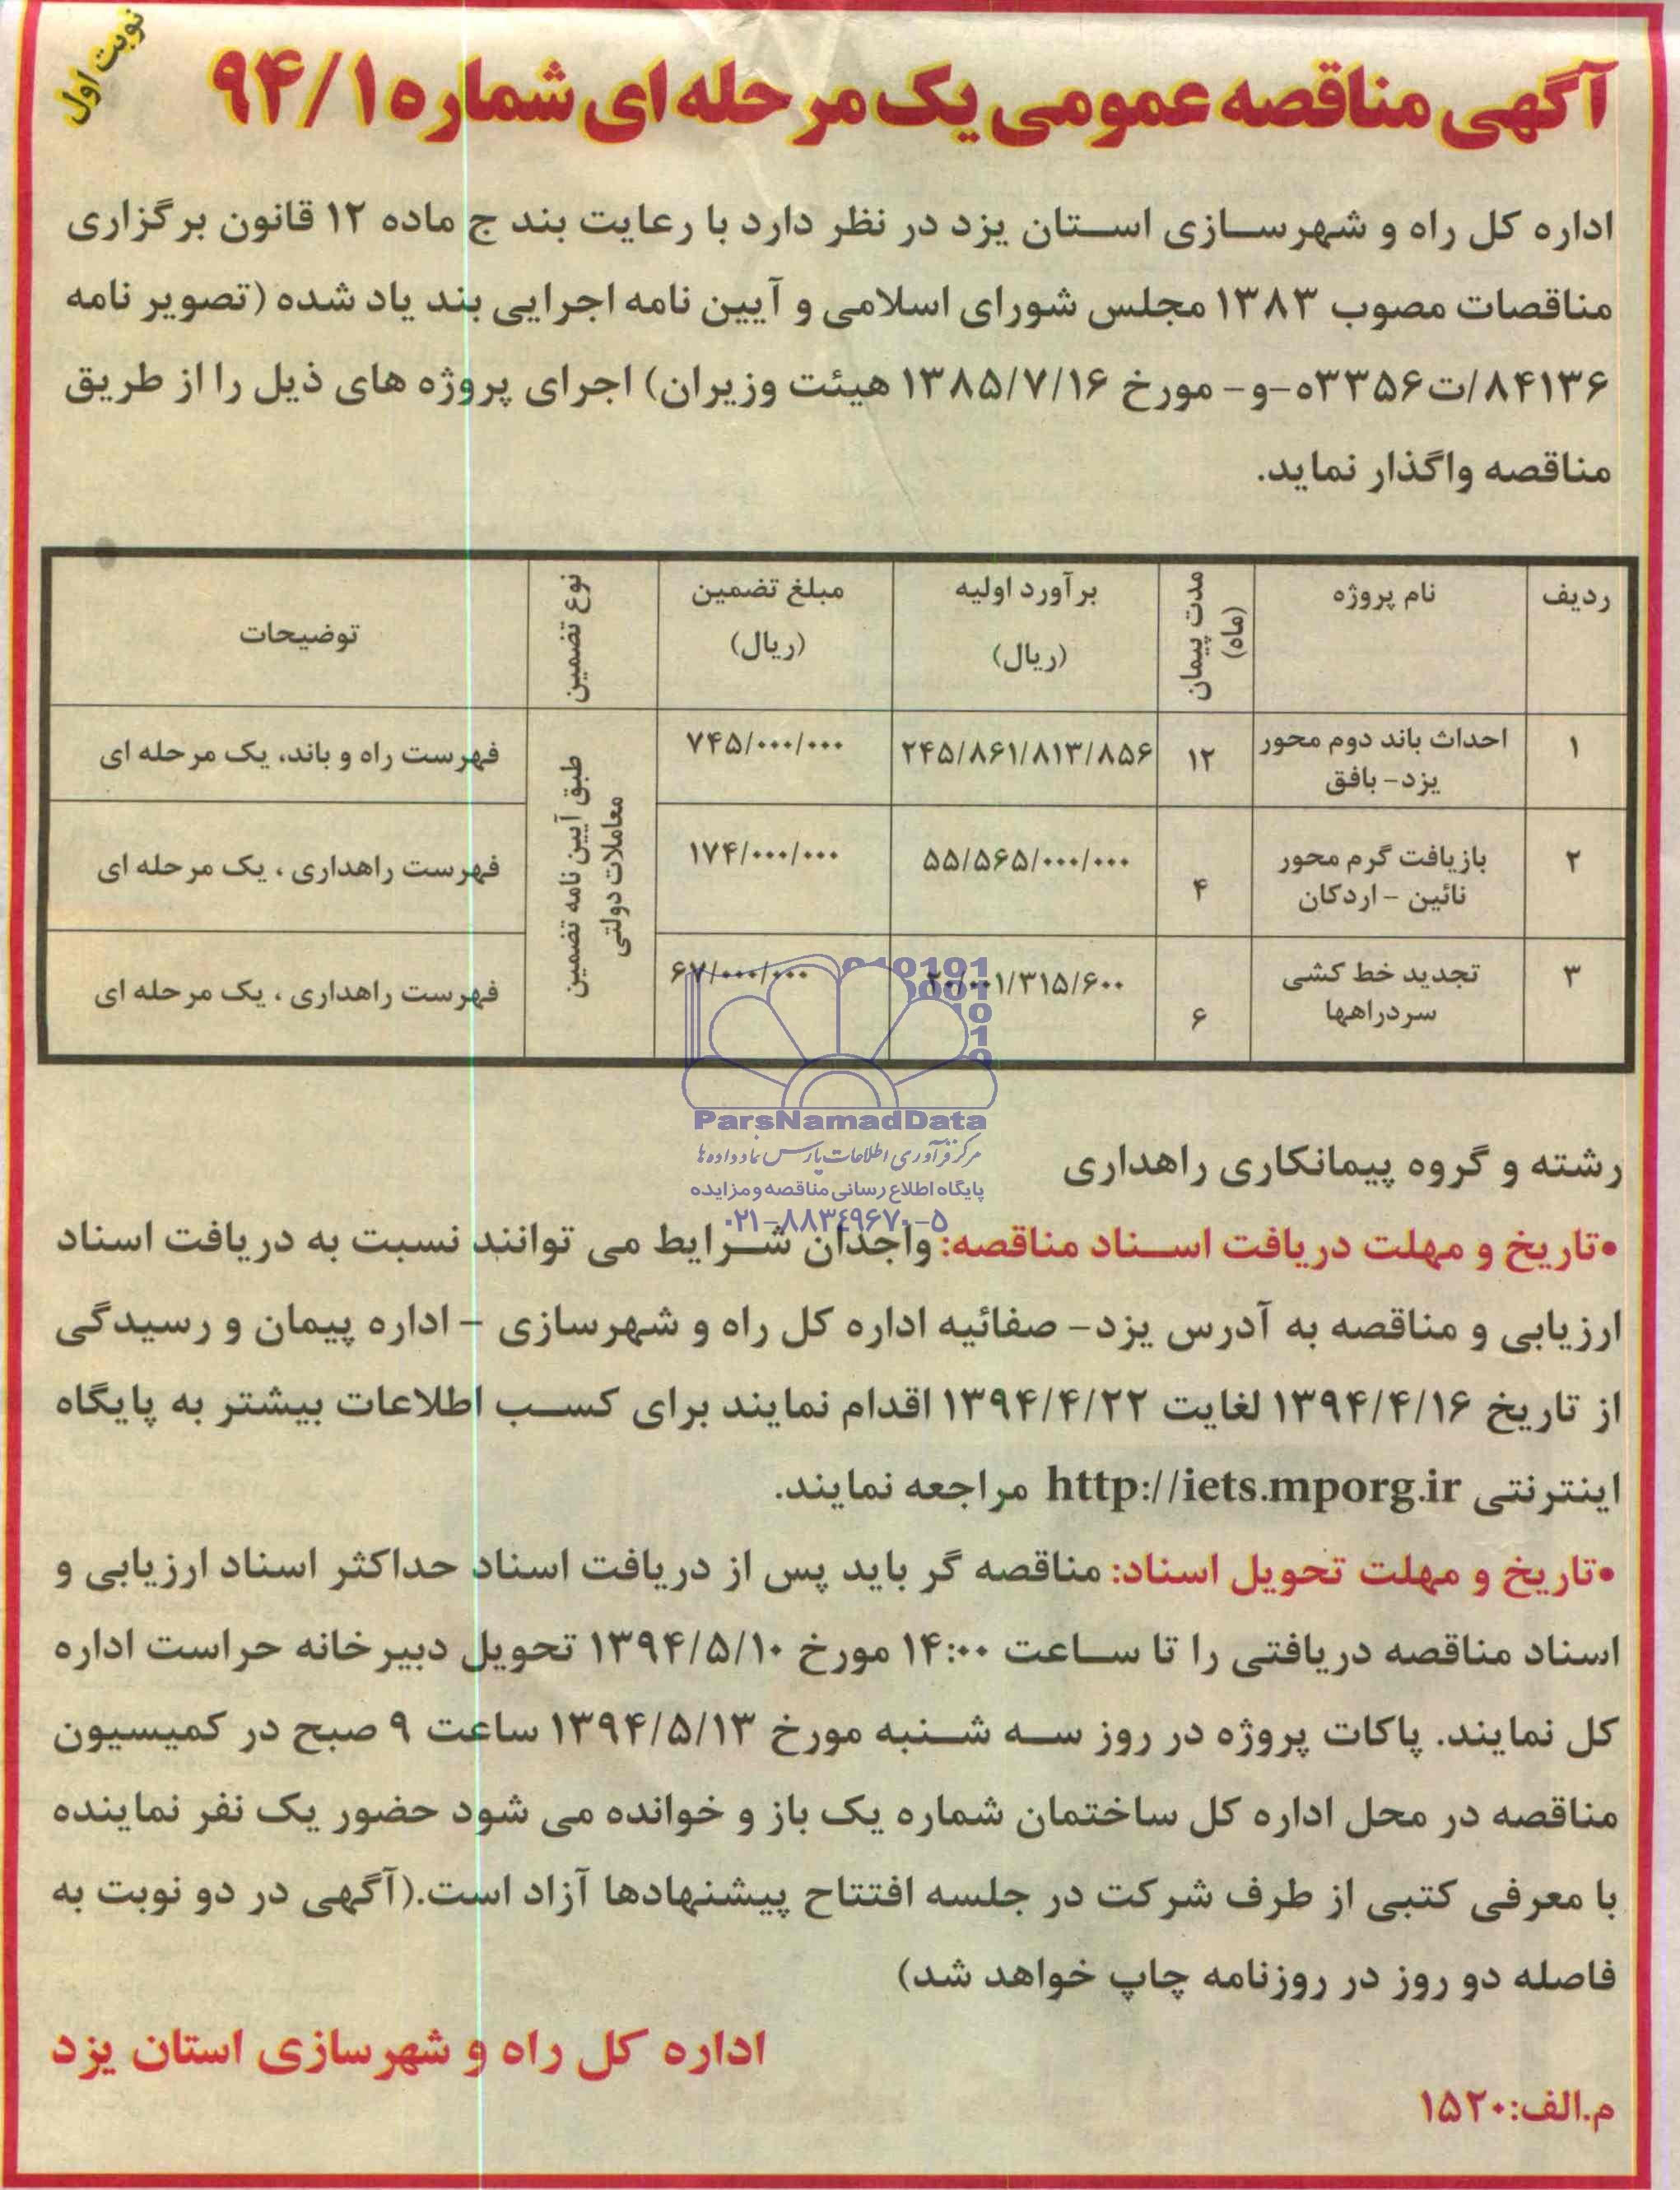 نوبت اول
آگهی مناقصه عمومی یک مرحله ای شماره ۹۴/۱
اداره کل راه و شهرسازی استان یزد در نظر دارد با رعایت بند ج ماده ۱۲ قانون برگزاری
مناقصات مصوب ۱۳۸۳ مجلس شورای اسلامی و آیین نامه اجرایی بند یاد شده (تصویر نامه
۸۴۱۳۶/ت۳۳۵۶ه-و- مورخ ۱۳۸۵/۷/۱۶ هیئت وزیران) اجرای پروژه های ذیل را از طریق
مناقصه واگذار نماید.
ردیف نام پروژه مدت پیمان (ماه) برآورد اولیه (ریال) مبلغ تضمین (ریال) نوع تضمین توضیحات
۱ احداث باند دوم محور یزد- بافق ۱۲ ۲۴۵/۸۶۱/۸۱۳/۸۵۶ ۷۴۵/۰۰۰/۰۰۰ طبق آیین نامه تضمین معاملات دولتی فهرست راه و باند، یک مرحله ای
۲ بازیافت گرم محور نائین - اردکان ۴ ۵۵/۵۶۵/۰۰۰/۰۰۰ ۱۷۴/۰۰۰/۰۰۰ فهرست راهداری ، یک مرحله ای
۳ تجدید خط کشی سردراهها ۶ ۲۰/۰۰۱/۳۱۵/۶۰۰ ۶۷/۰۰۰/۰۰۰ فهرست راهداری ، یک مرحله ای
ParsNamadData
مرکز فرآوری اطلاعات پارس نماد داده ها
پایگاه اطلاع رسانی مناقصه و مزایده
۰۲۱-۸۸۳۴۹۶۷۰-۵
رشته و گروه پیمانکاری راهداری
•تاریخ و مهلت دریافت اسناد مناقصه: واجدان شرایط می توانند نسبت به دریافت اسناد
ارزیابی و مناقصه به آدرس یزد- صفائیه اداره کل راه و شهرسازی - اداره پیمان و رسیدگی
از تاریخ ۱۳۹۴/۴/۱۶ لغایت ۱۳۹۴/۴/۲۲ اقدام نمایند برای کسب اطلاعات بیشتر به پایگاه
اینترنتی http://iets.mporg.ir مراجعه نمایند.
•تاریخ و مهلت تحویل اسناد: مناقصه گر باید پس از دریافت اسناد حداکثر اسناد ارزیابی و
اسناد مناقصه دریافتی را تا ساعت ۱۴:۰۰ مورخ ۱۳۹۴/۵/۱۰ تحویل دبیرخانه حراست اداره
کل نمایند. پاکات پروژه در روز سه شنبه مورخ ۱۳۹۴/۵/۱۳ ساعت ۹ صبح در کمیسیون
مناقصه در محل اداره کل ساختمان شماره یک باز و خوانده می شود حضور یک نفر نماینده
با معرفی کتبی از طرف شرکت در جلسه افتتاح پیشنهادها آزاد است.(آگهی در دو نوبت به
فاصله دو روز در روزنامه چاپ خواهد شد)
اداره کل راه و شهرسازی استان یزد
م.الف:۱۵۲۰